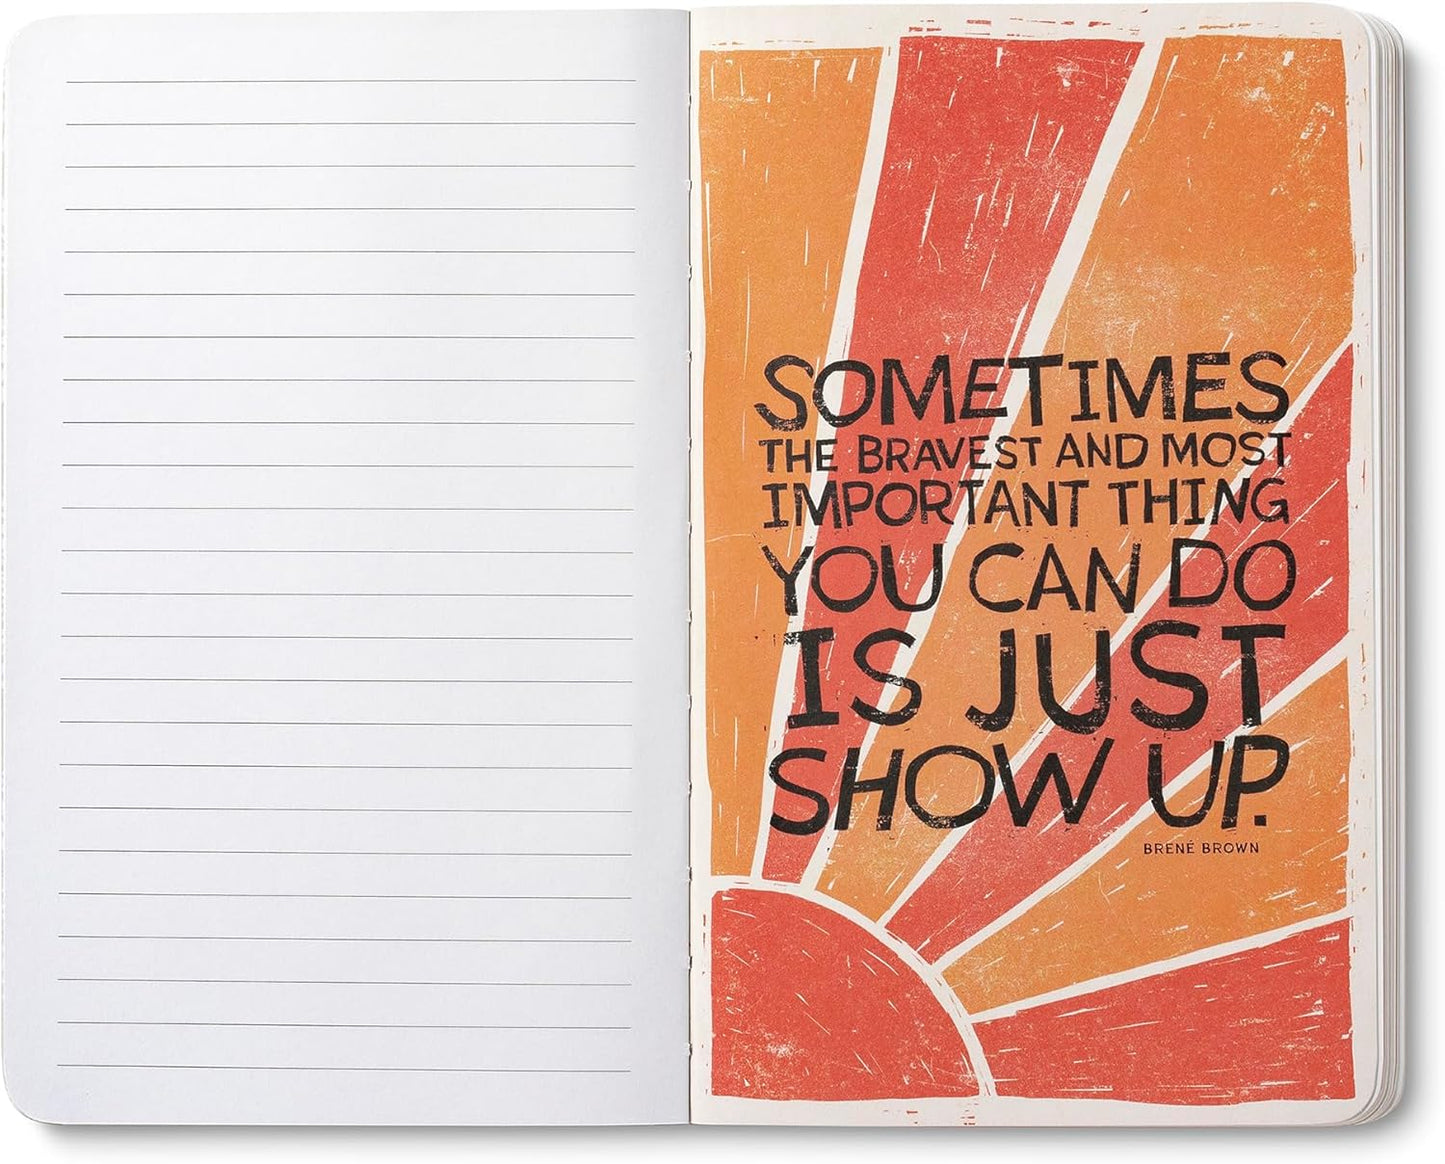 SOMETIMES
THE BRAVEST AND MOST
IMPORTANT THING
YOU CAN DO
IS JUST
SHOW UP.
BRENÉ BROWN